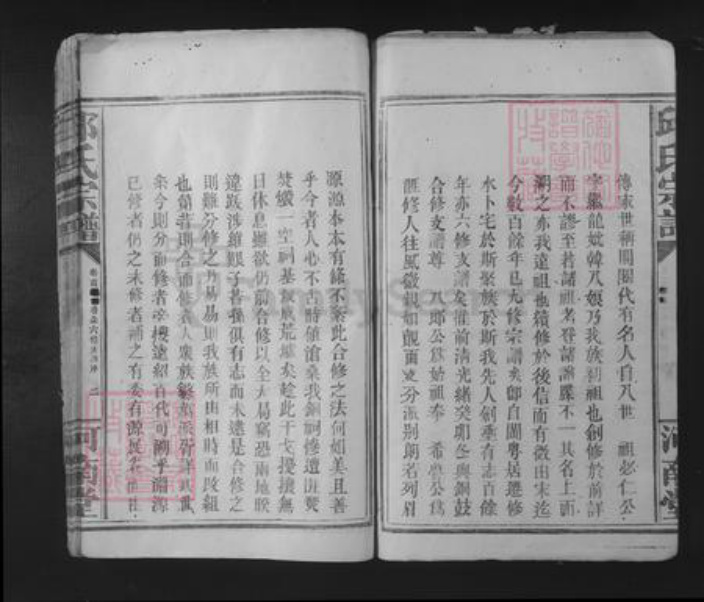 邱氏宗譜
河南堂
傳家世稱閥閱代有名人自八世 祖必仁公
字繼龍妣韓八娘乃我族初祖也創修於前詳
而不謬至若諸祖名登諸牒不一其名上而
溯之亦我遠祖也續修於後信而有徵由宋迄
今數百餘年已九修宗譜矣自閩粵居遷修
水卜宅於斯聚族於斯我先人創垂有志百餘
年亦六修支譜矣惟前清光緒癸卯仝與銅鼓
合修支譜尊 八郎公為始祖奉 希 公為
匯修人往風微親如覿面支分派別朗若列眉
源源本本有條不紊此合修之法何如美且善
乎今者人心不古時值滄桑我銅祠慘遭匪燹
焚燬一空祠基竟成荒墟矣趁此干戈擾攘無
日休息雖欲仍前合修以全大局竊恐兩地睽
違跋涉維艱子善孫俱有志而未逮是合修之
則難分修之乃易易則我族所由相時而改組
也 昔則合而修者人衆族繁 派晉詳 世
系今則分而修者 遠紹百代可溯乎淵源
已修者仍之未修者補之有委有源 在
邱氏宗譜
河南堂